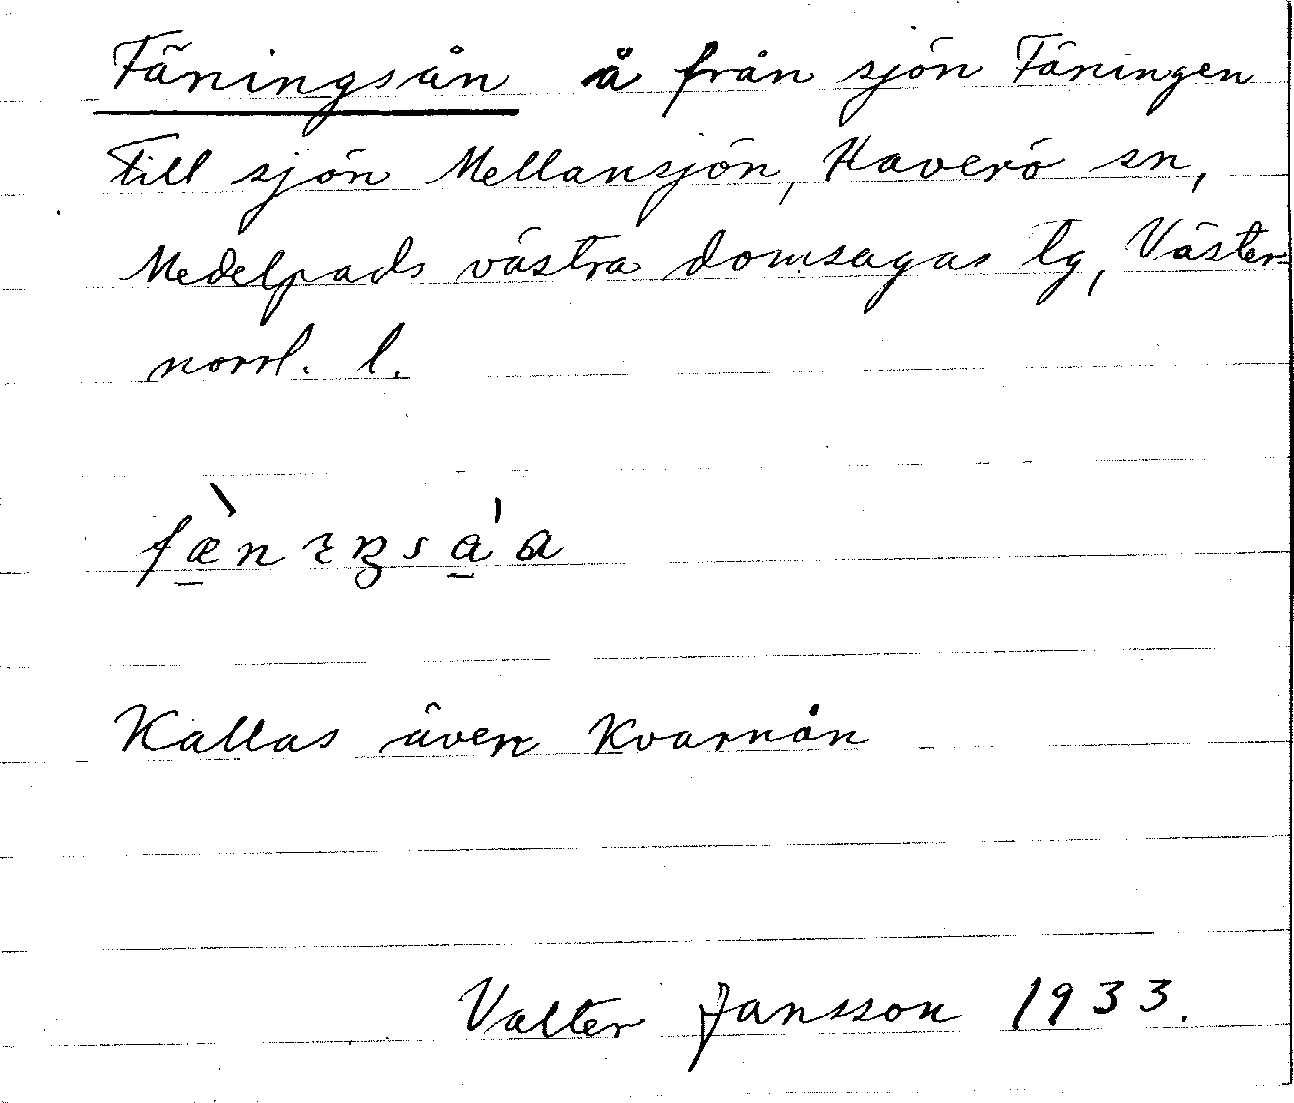 Fäningsån å från sjön Fäningen
till sjön Mellansjön, Haverö sn,
Medelpads västra domsagas tg, Väster-
norrl. l.
Kallas även Kvarnån
Valter Jansson 1933.